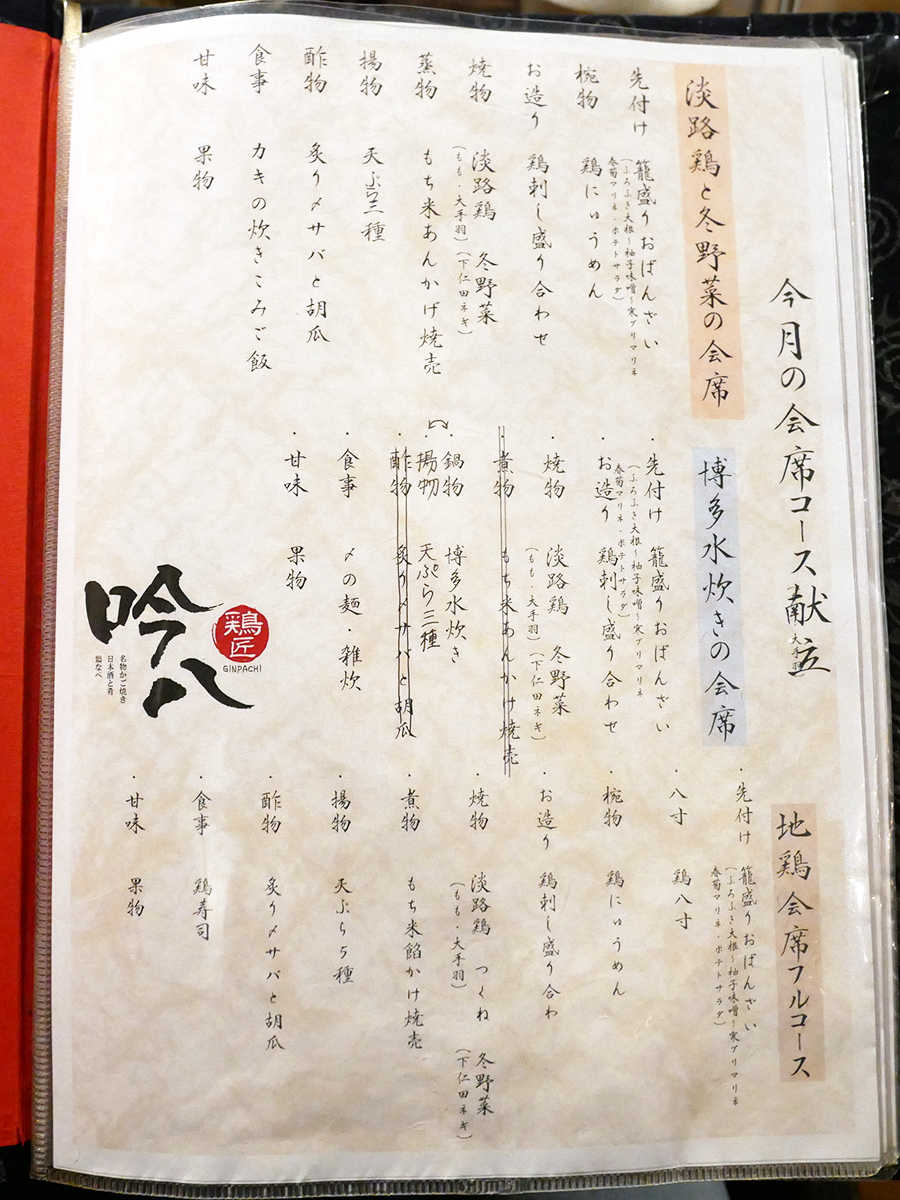 今月の会席コース献立
大手羽
淡路鶏と冬野菜の会席
先付け 籠盛りおばんざい
(ふろふき大根~柚子味噌~寒ブリマリネ
春菊マリネ・ポテトサラダ)
椀物 鶏にゅうめん
お造り 鶏刺し盛り合わせ
焼物 淡路鶏 冬野菜
(もも・大手羽) (下仁田ネギ)
蒸物 もち米あんかけ焼売
揚物 天ぷら三種
酢物 炙り〆サバと胡瓜
食事 カキの炊きこみご飯
甘味 果物
博多水炊きの会席
・先付け 籠盛りおばんざい
(ふろふき大根~柚子味噌~寒ブリマリネ
春菊マリネ・ポテトサラダ)
お造り 鶏刺し盛り合わせ
・焼物 淡路鶏 冬野菜
(もも・大手羽) (下仁田ネギ)
・煮物 もち米あんかけ焼売
・鍋物 博多水炊き
・揚物 天ぷら三種
・酢物 炙り〆サバと胡瓜
・食事 〆の麺・雑炊
・甘味 果物
地鶏会席フルコース
・先付け 籠盛りおばんざい
(ふろふき大根~柚子味噌~寒ブリマリネ
春菊マリネ・ポテトサラダ)
・八寸 鶏八寸
・椀物 鶏にゅうめん
・お造り 鶏刺し盛り合わ
・焼物 淡路鶏 つくね 冬野菜
(もも・大手羽) (下仁田ネギ)
・煮物 もち米餡かけ焼売
・揚物 天ぷら5種
・酢物 炙り〆サバと胡瓜
・食事 鶏寿司
・甘味 果物
吟八
鶏匠
GINPACHI
名物かご焼き
日本酒と肴
鶏なべ